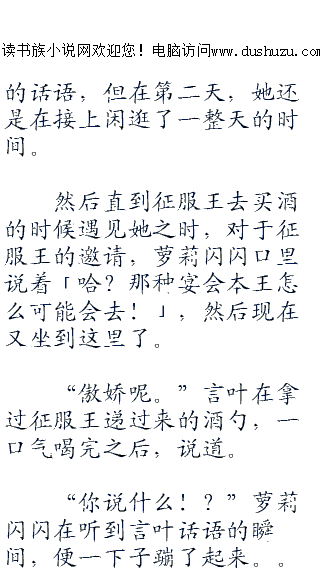 读书族小说网欢迎您！电脑访问www.dushuzu.com
的话语，但在第二天，她还
是在接上闲逛了一整天的时
间。
然后直到征服王去买酒
的时候遇见她之时，对于征
服王的邀请，萝莉闪闪口里
说着「哈？那种宴会本王怎
么可能会去！」，然后现在
又坐到这里了。
“傲娇呢。”言叶在拿
过征服王递过来的酒勺，一
口气喝完之后，说道。
“你说什么！？”萝莉
闪闪在听到言叶话语的瞬
间，便一下子蹦了起来。。